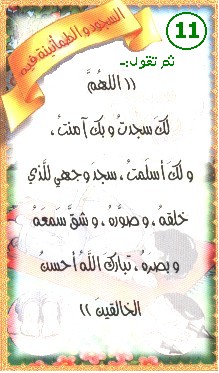 11
السجود والطمأنينة فيه
ثم تقول :-
(( اللهُمَّ
لكَ سجدتُ و بكَ آمنتُ ،
و لكَ أسلمتُ ، سجدَ وجهي للَّذي
خلقهُ ، و صوَّرهُ ، و شقَّ سَمعَهُ
و بصرَهُ ، تباركَ اللَّهُ أحسنُ
الخالقينَ ))